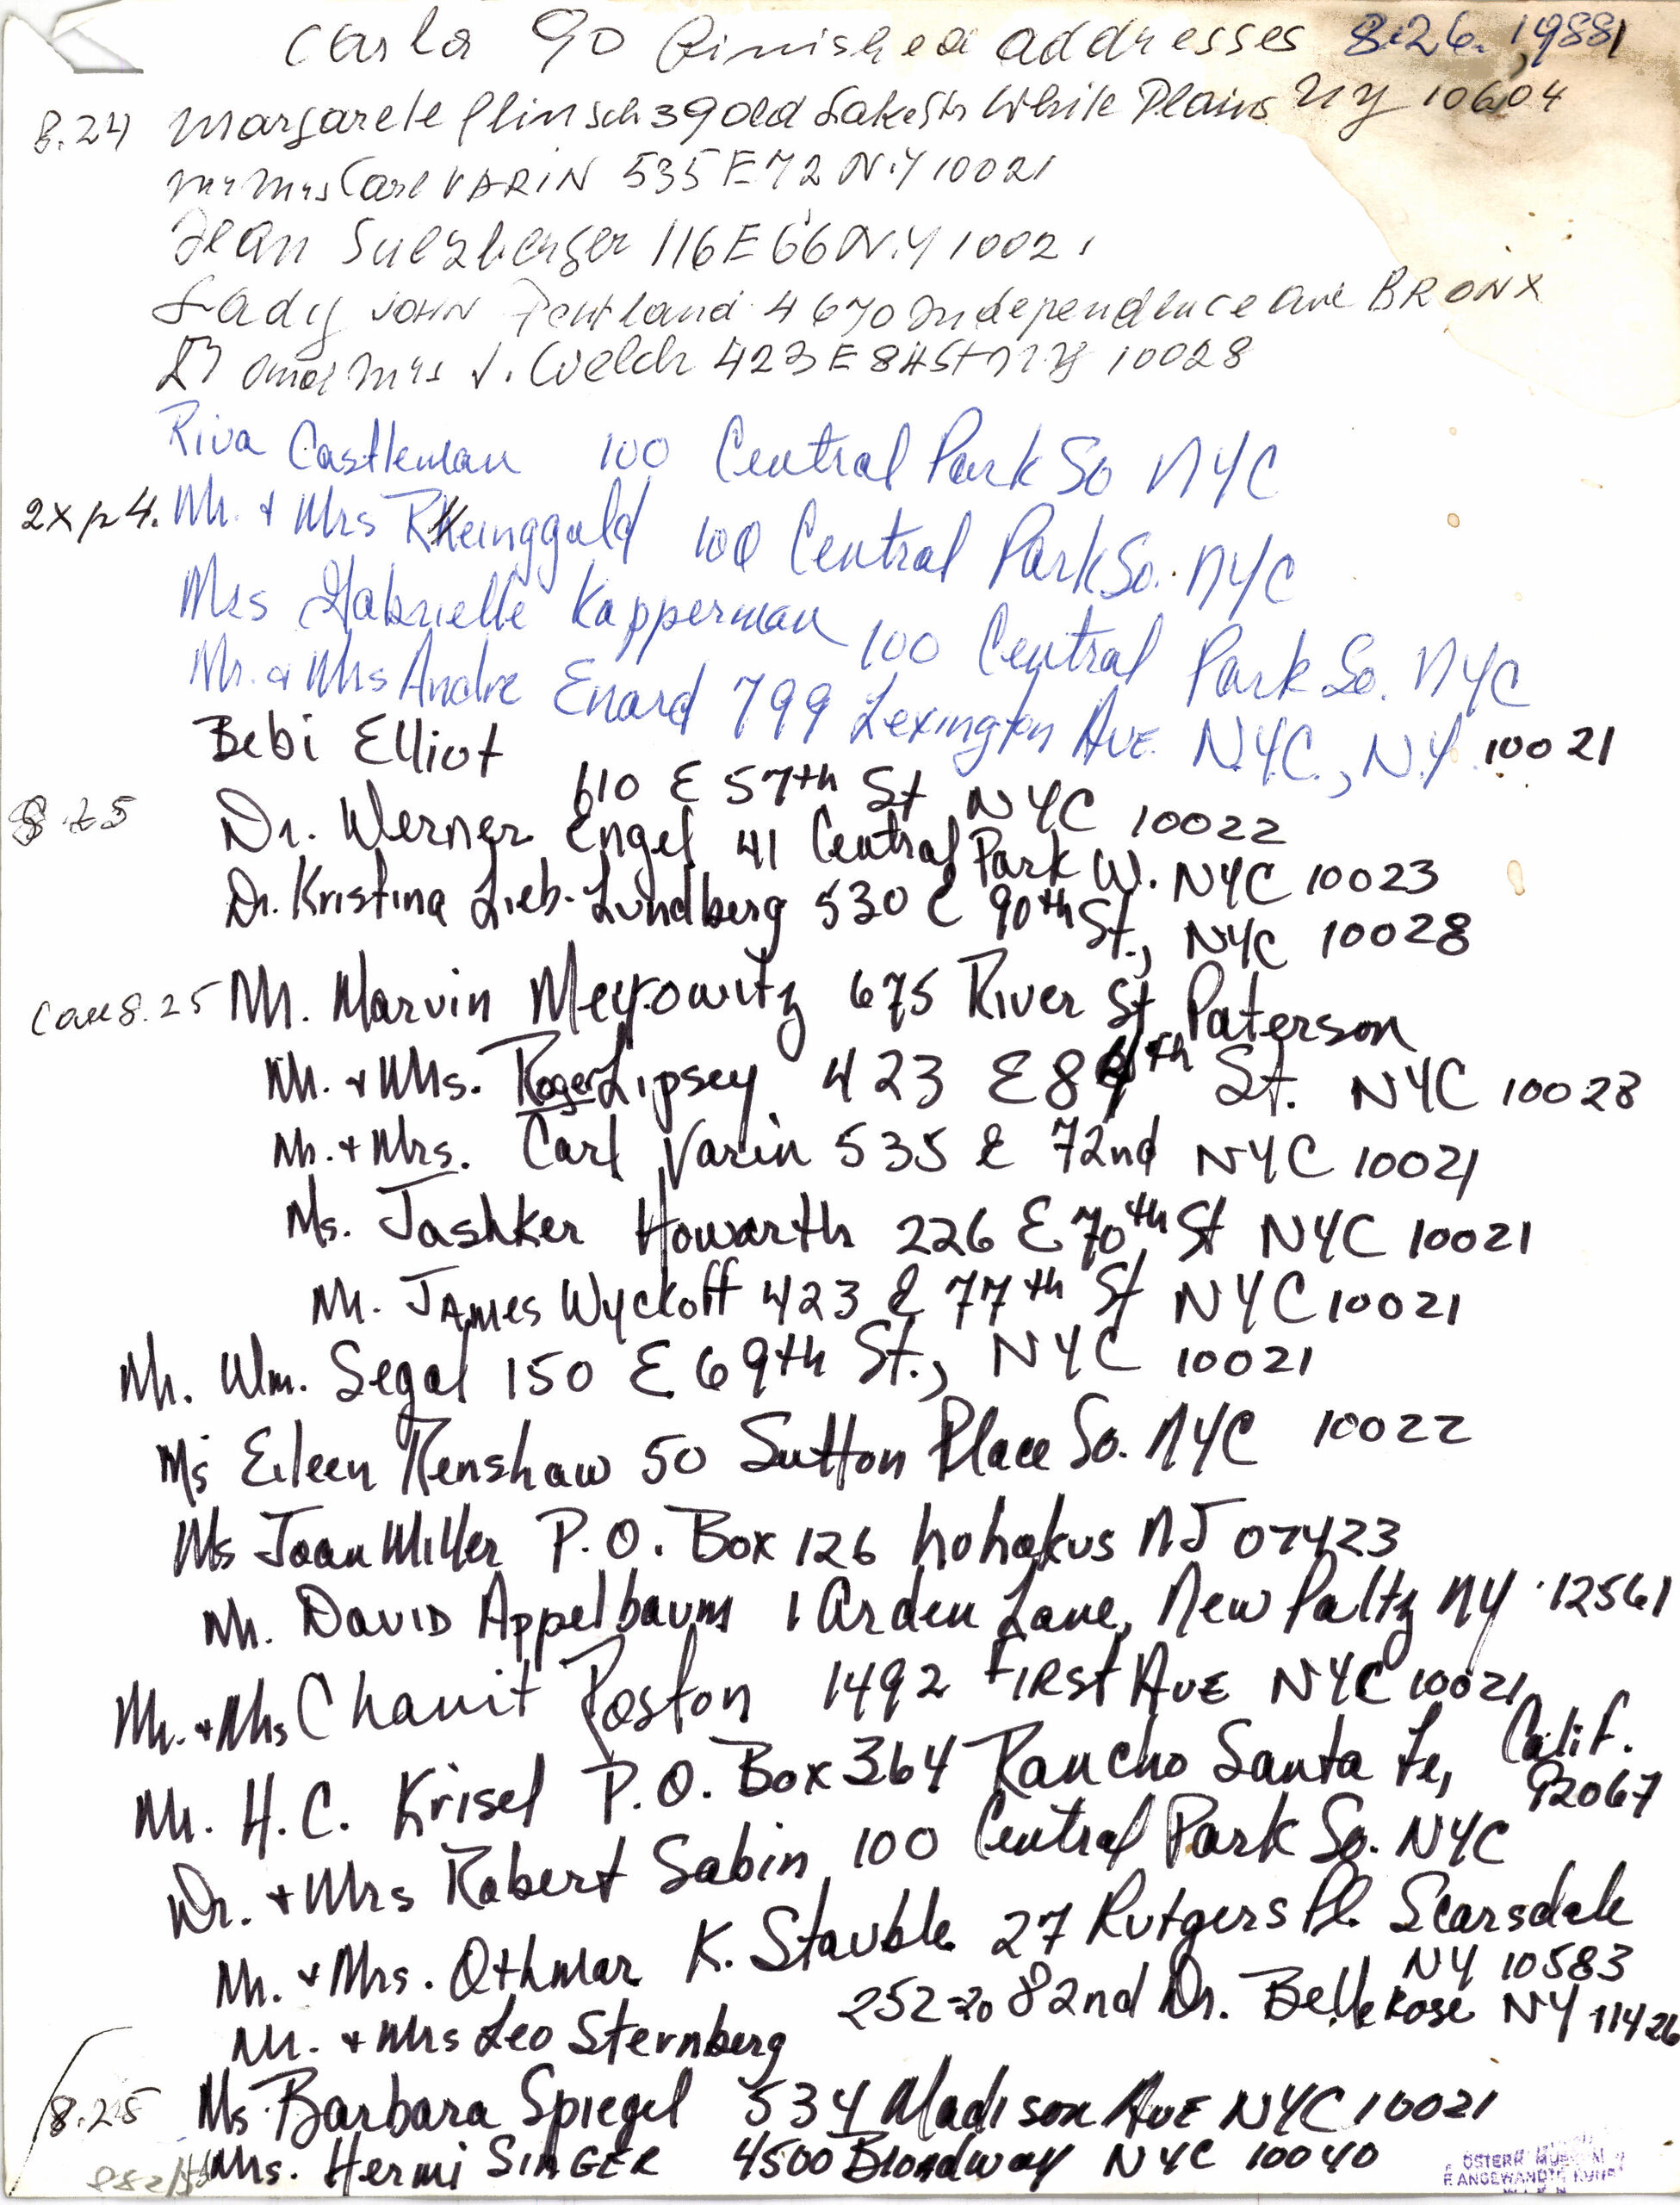 Carla 90 finished addresses 8.26.1988
8.24 Margarete Flinsch 39 Old Lake Str White Plains NY 10604
Mr Mrs Carl VARIN 535 E 72 N.Y 10021
Jean Sulzberger 116 E 66 N.Y 10021
Lady JOHN Pentland 4670 Independence Ave BRONX
Dr and Mrs J. Welch 423 E 84 St NY 10028
Riva Castleman 100 Central Park So NYC
2x p 4. Mr. + Mrs Rheinggold 100 Central Park So. NYC
Mrs Gabrielle Kapperman 100 Central Park So. NYC
Mr. & Mrs Andre Enard 799 Lexington Ave. N.Y.C., N.Y. 10021
Bebi Elliot 610 E 57th St NYC 10022
8.25 Dr. Werner Engel 41 Central Park W. NYC 10023
Dr. Kristina Lieb-Lundberg 530 E 90th St., NYC 10028
8.25 Mr. Marvin Meyrowitz 675 River St Paterson
Mr. + Mrs. Roger Lipsey 423 E 84th St. NYC 10028
Mr. + Mrs. Carl Varin 535 E 72nd NYC 10021
Ms. Jashker Howarth 226 E 70th St NYC 10021
Mr. JAMES Wyckoff 423 E 77th St NYC 10021
Mr. Wm. Segal 150 E 69th St., NYC 10021
Ms Eileen Renshaw 50 Sutton Place So. NYC 10022
Ms Joan Miller P.O. Box 126 hohokus NJ 07423
Mr. DAVID Appelbaum 1 Arden Lane, New Paltz NY 12561
Mr. + Mrs Chanit Roston 1492 FIRST AVE NYC 10021
Mr. H.C. Krisel P.O. Box 364 Rancho Santa Fe, Calif. 92067
Dr. + Mrs Robert Sabin 100 Central Park So. NYC
Mr. + Mrs. Othmar K. Stauble 27 Rutgers Pl. Scarsdale NY 10583
Mr. + Mrs Leo Sternberg 252-20 82nd Dr. Bellerose NY 11426
8.25 Ms. Barbara Spiegel 534 Madison AVE NYC 10021
Mrs. Hermi SINGER 4500 Broadway NYC 10040
ÖSTERR MUSEUM
F ANGEWANDTE KUNST
WIEN